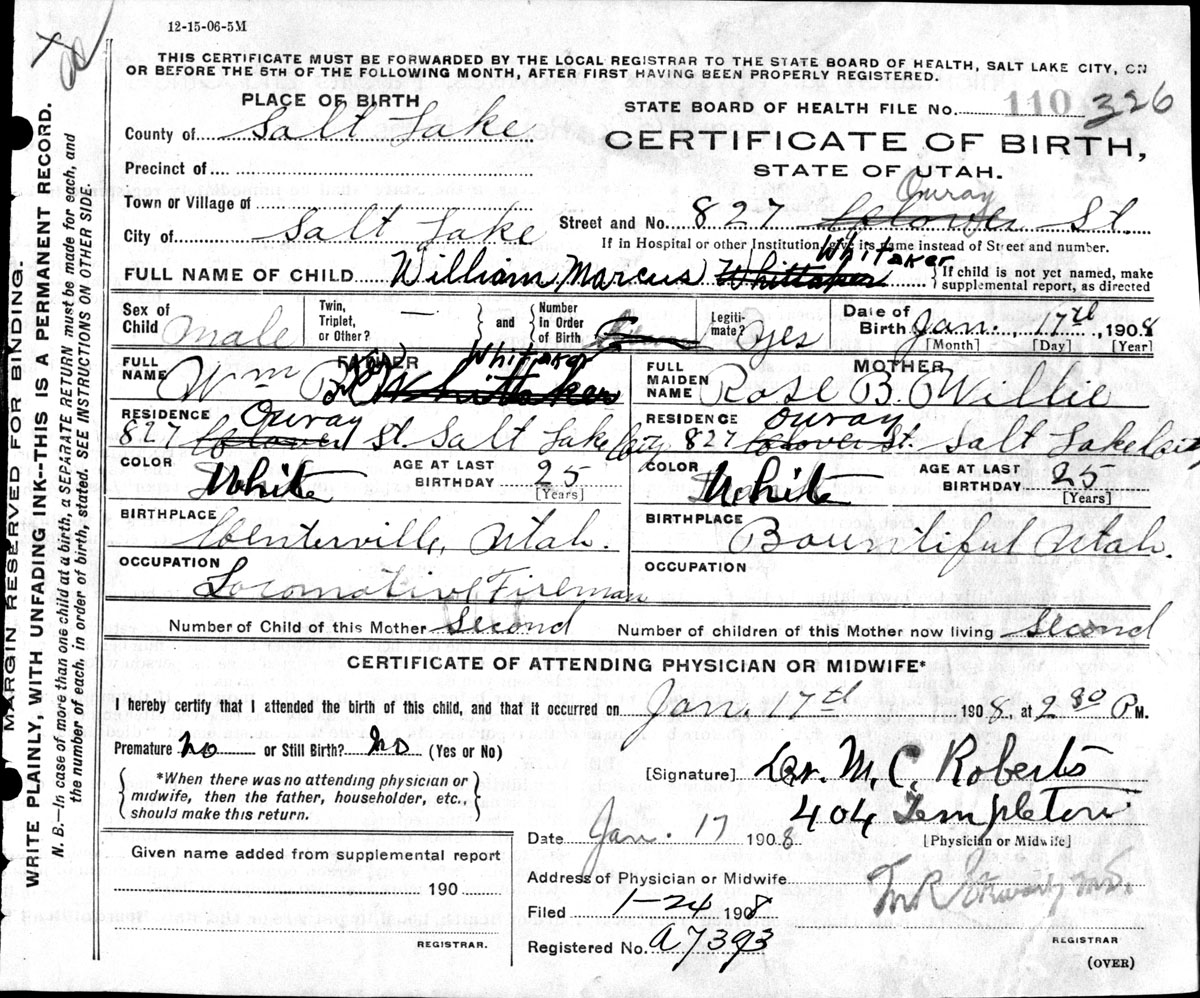 12-15-06-5M
THIS CERTIFICATE MUST BE FORWARDED BY THE LOCAL REGISTRAR TO THE STATE BOARD OF HEALTH, SALT LAKE CITY, ON
OR BEFORE THE 5TH OF THE FOLLOWING MONTH, AFTER FIRST HAVING BEEN PROPERLY REGISTERED.
PLACE OF BIRTH
STATE BOARD OF HEALTH FILE No. 110 326
County of Salt Lake
CERTIFICATE OF BIRTH,
STATE OF UTAH.
Precinct of
Town or Village of
Ouray
Street and No. 827 Clover St.
City of Salt Lake
If in Hospital or other Institution, give its name instead of Street and number.
Whitaker
FULL NAME OF CHILD William Marcus Whittaker
If child is not yet named, make
supplemental report, as directed
Sex of Child male
Twin, Triplet, or Other? —
and
Number in Order of Birth
Legiti-mate? yes
Date of Birth Jan. 17th, 1908
[Month] [Day] [Year]
FATHER
Whitaker
FULL NAME Wm Whittaker
MOTHER
FULL MAIDEN NAME Rose B. Willie
RESIDENCE
Ouray
827 Clover St. Salt Lake City
RESIDENCE
Ouray
827 Clover St. Salt Lake City
COLOR White
AGE AT LAST BIRTHDAY 25
[Years]
COLOR White
AGE AT LAST BIRTHDAY 25
[Years]
BIRTHPLACE
Centerville, Utah.
BIRTHPLACE
Bountiful Utah.
OCCUPATION
Locomotive Fireman
OCCUPATION
Number of Child of this Mother Second
Number of children of this Mother now living Second
CERTIFICATE OF ATTENDING PHYSICIAN OR MIDWIFE*
I hereby certify that I attended the birth of this child, and that it occurred on Jan. 17th 1908, at 2 30 P M.
Premature no or Still Birth? no (Yes or No)
*When there was no attending physician or
midwife, then the father, householder, etc.,
should make this return.
[Signature] Dr. M. C. Roberts
404 Templeton
Date Jan. 17 1908
[Physician or Midwife]
Given name added from supplemental report
190
REGISTRAR.
Address of Physician or Midwife
Filed 1-24 1908
Registered No. A7393
REGISTRAR
(OVER)
MARGIN RESERVED FOR BINDING.
WRITE PLAINLY, WITH UNFADING INK--THIS IS A PERMANENT RECORD.
N. B.—In case of more than one child at a birth, a SEPARATE RETURN must be made for each, and
the number of each, in order of birth, stated. SEE INSTRUCTIONS ON OTHER SIDE.